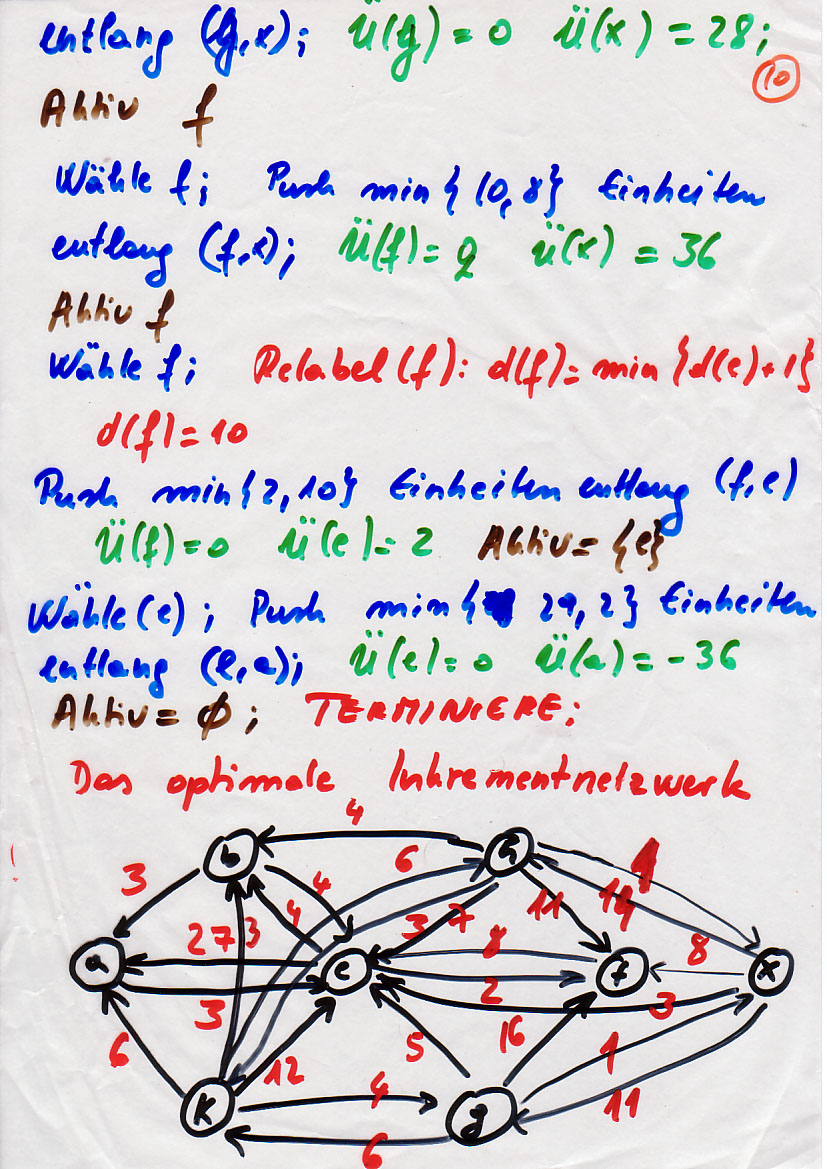 entlang (g,x); Ü(g) = 0 Ü(x) = 28;
10
Aktiv f
Wähle f; Push min{10,8} Einheiten
entlang (f,x); Ü(f)= 2 Ü(x) = 36
Aktiv f
Wähle f; Relabel(f): d(f)= min {d(e)+1}
d(f)=10
Push min{2,10} Einheiten entlang (f,e)
Ü(f)=0 Ü(e)=2 Aktiv= {e}
Wähle(e); Push min{ 29,2} Einheiten
entlang (e,a); Ü(e)=0 Ü(a)=-36
Aktiv= ∅; TERMINIERE;
Das optimale Inkrementnetzwerk
4
b 6 h 1
3 4 4 11 14
27 3 3 7 8 8
a e f x
3 2 3
6 12 5 16 1
k 4 g 11
6